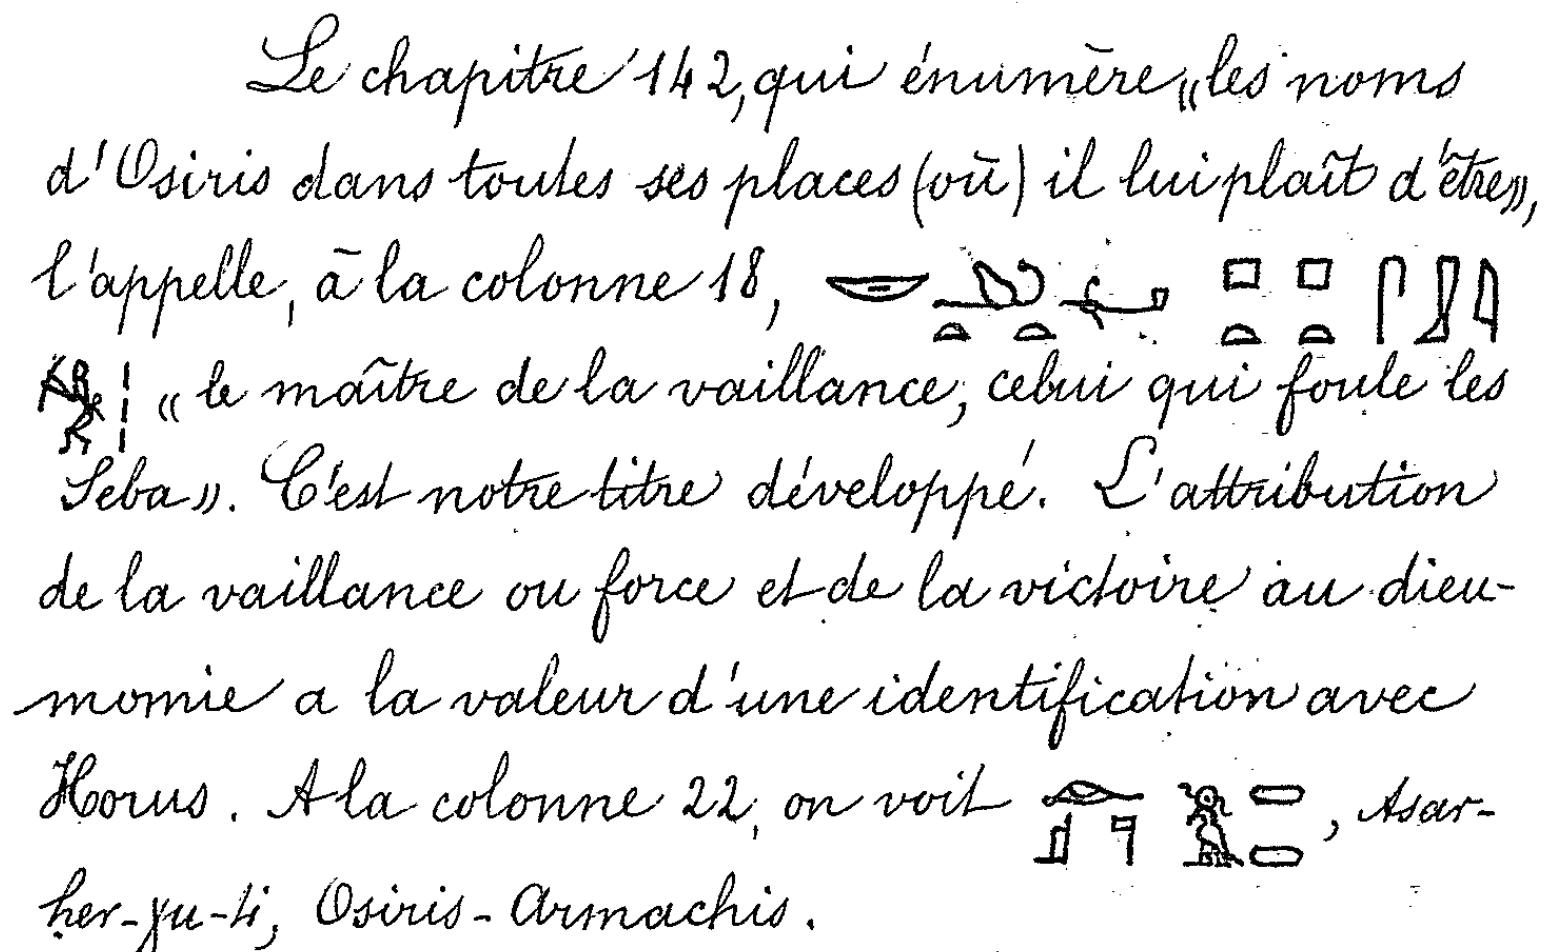 Le chapitre 142, qui énumère «les noms
d'Osiris dans toutes ses places (où) il lui plaît d'être»,
l'appelle, à la colonne 18,
« le maître de la vaillance, celui qui foule les
Seba». C'est notre titre développé. L'attribution
de la vaillance ou force et de la victoire au dieu-
momie a la valeur d'une identification avec
Horus. A la colonne 22, on voit , Asar-
ḥer-χu-ti, Osiris-Armachis.